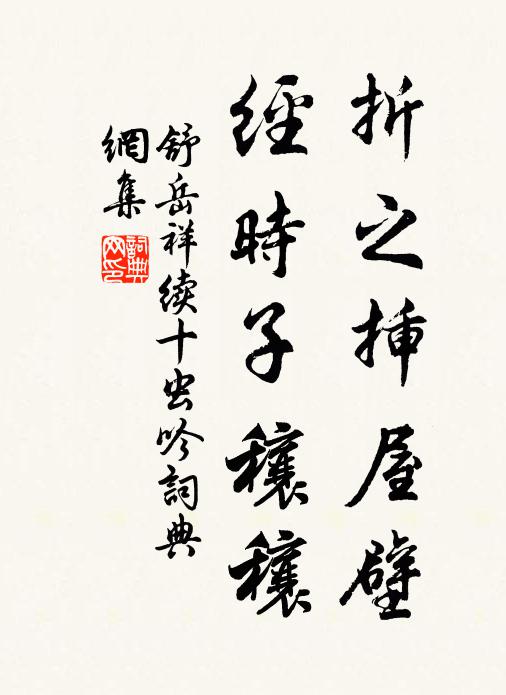 折之挿屋壁
經時子穰穰
舒岳祥续十虫吟詞典
網集
詞典
网印